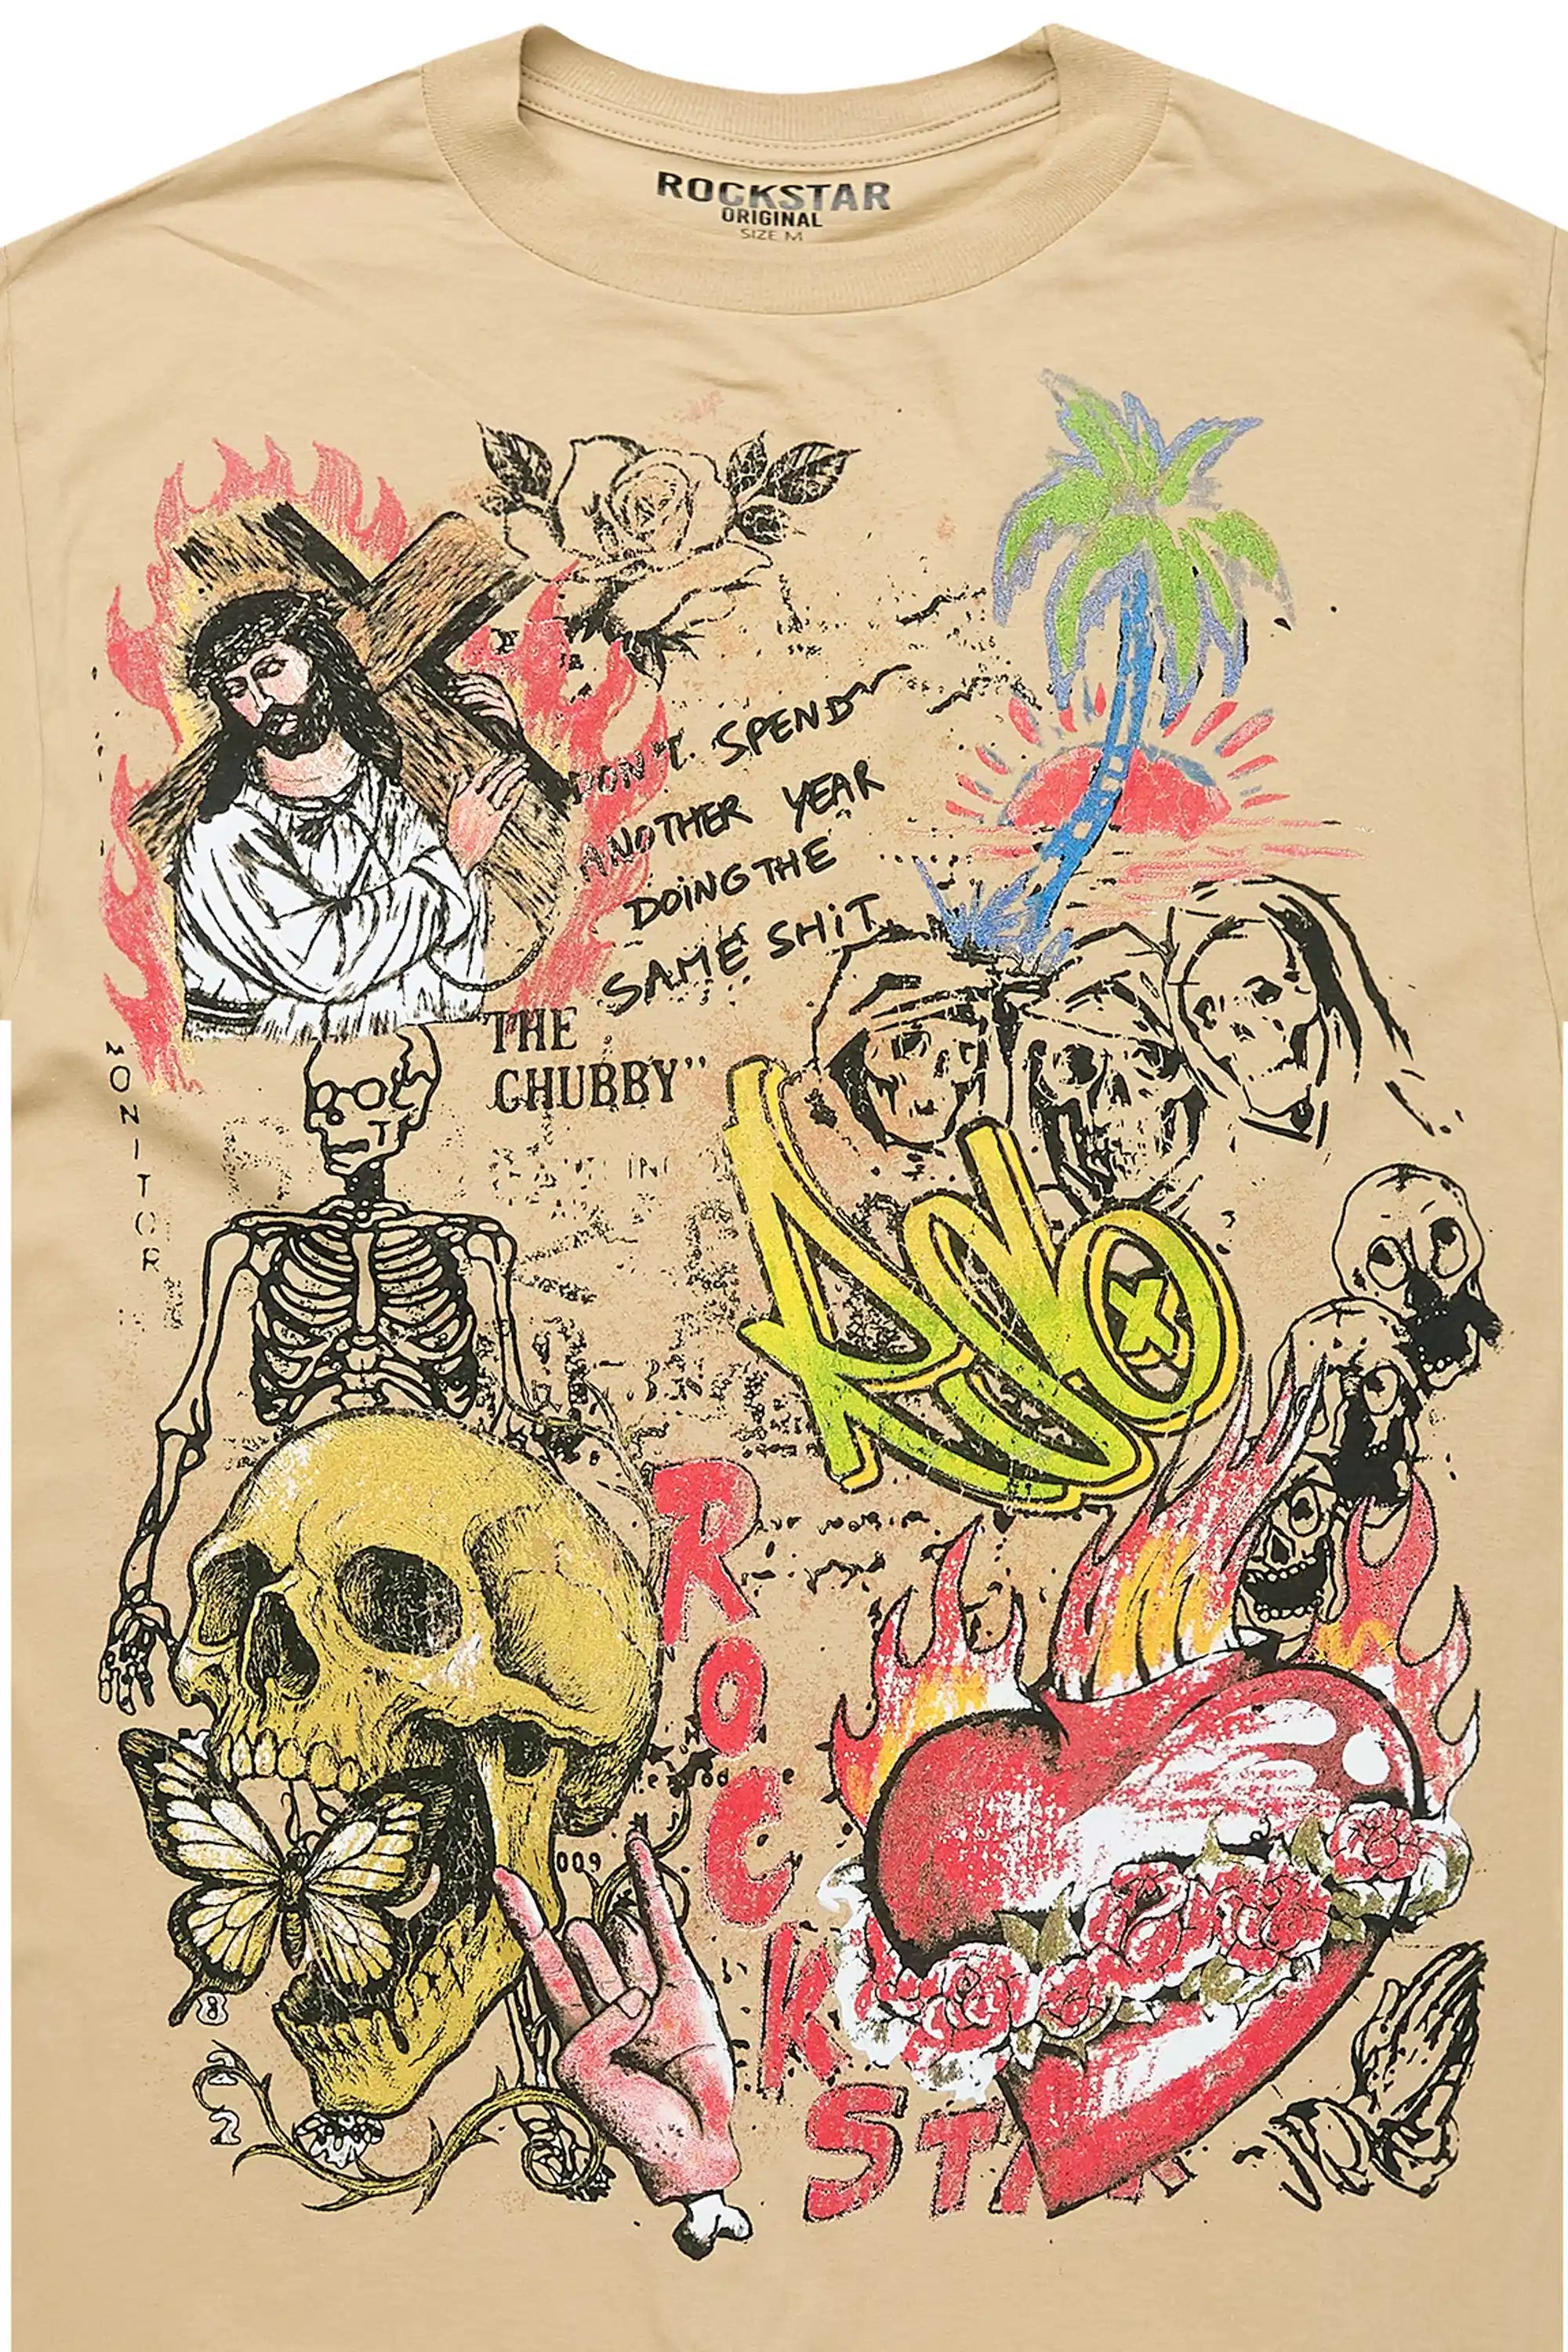 ROCKSTAR
ORIGINAL
SIZE M
DON'T SPEND
ANOTHER YEAR
DOING THE
SAME SHIT
THE
CHUBBY"
MONITOR
ROCK
STAR
009
8
2
2